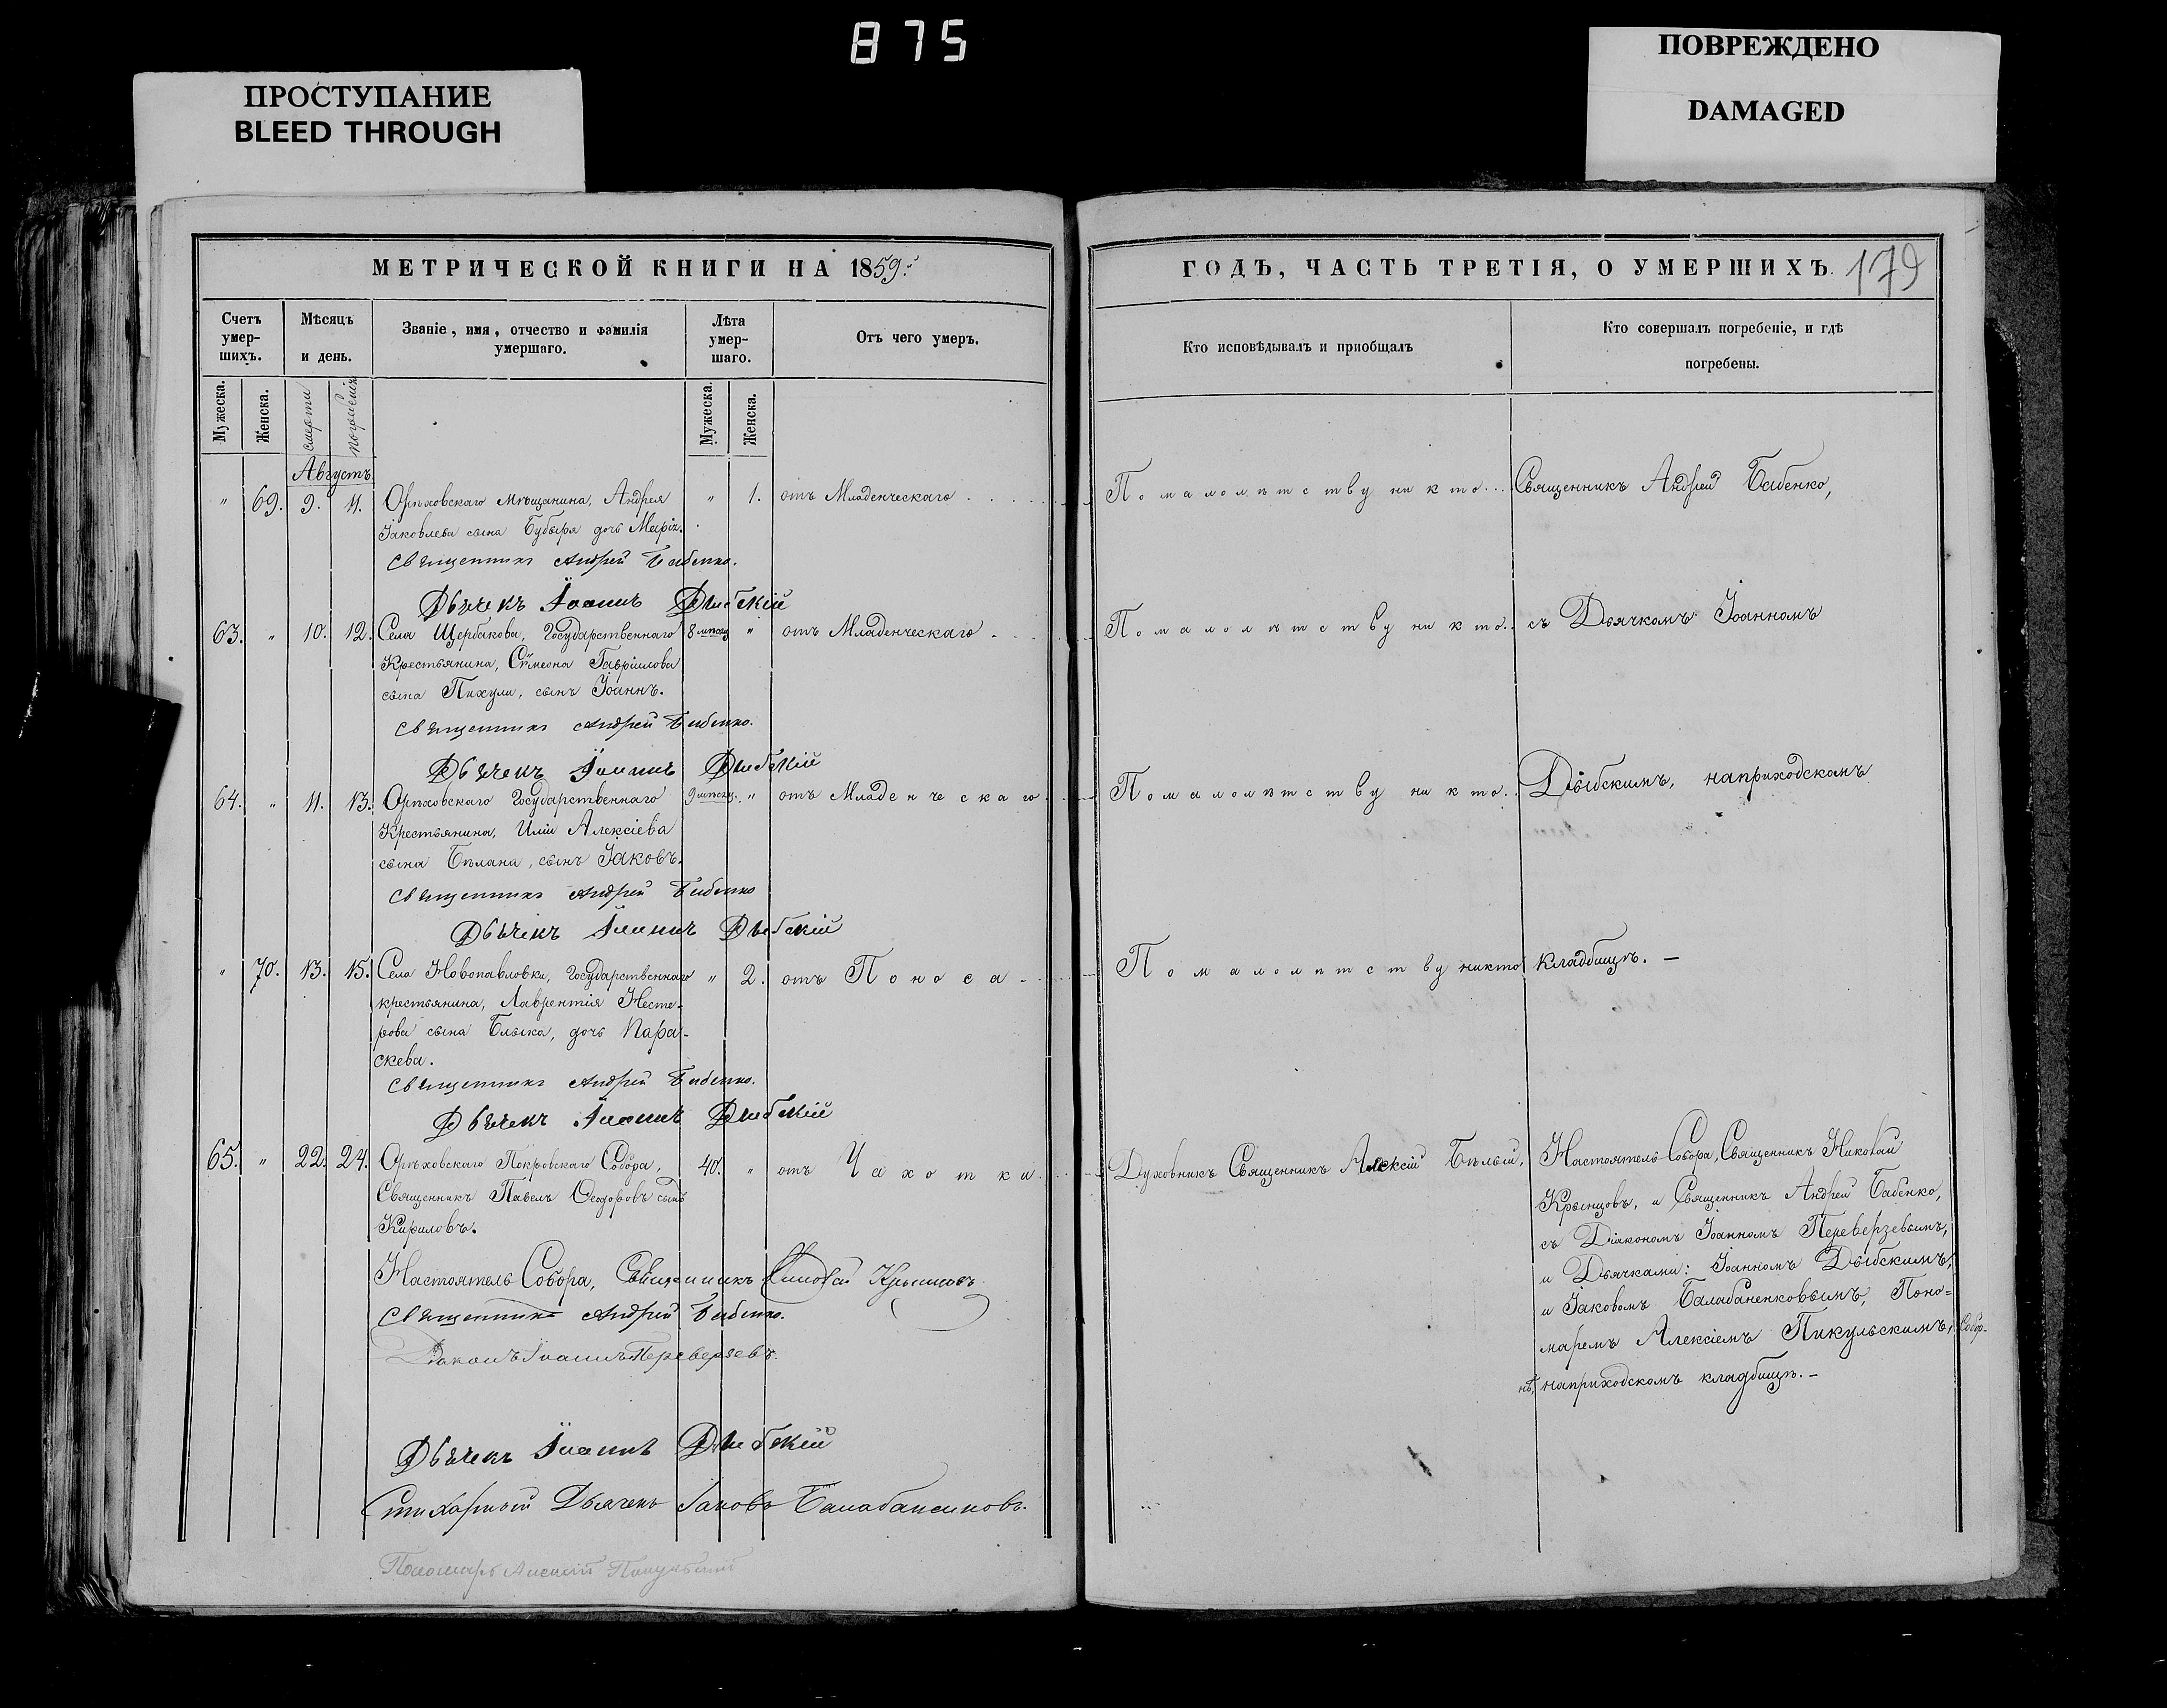 875
ПРОСТУПАНИЕ
BLEED THROUGH
ПОВРЕЖДЕНО
DAMAGED
МЕТРИЧЕСКОЙ КНИГИ НА 1859.
Счетъ умер-шихъ.
Мѣсяцъ и день.
Званіе, имя, отчество и фамилія умершаго.
Лѣта умер-шаго.
Отъ чего умеръ.
Мужеска.
Женска.
смерти
погребенія
Мужеска.
Женска.
Августъ
" 69. 9. 11. Орѣховскаго Мѣщанина, Андрея " 1. отъ Младенческаго
Іаковлева сына Бубыря дочь Марія.
Священникъ Андрей Бабенко.
Дьячекъ Іоаннъ Дыбскій
63. " 10. 12. Села Щербакова, Государственнаго 8 мѣсяц " отъ Младенческаго
Крестьянина, Сѵмеона Гавріилова
сына Пихули, сынъ Іоаннъ.
Священникъ Андрей Бабенко.
Дьячекъ Іоаннъ Дыбскій
64. " 11. 13. Орѣховскаго Государственнаго 9 мѣсяц. " отъ Младенческаго
Крестьянина, Иліи Алексіева
сына Бѣлана, сынъ Іаковъ.
Священникъ Андрей Бабенко
Дьячекъ Іоаннъ Дыбскій
" 70. 13. 15. Села Новопавловки, Государственнаго " 2. отъ Поноса
крестьянина, Лаврентія Несте-
рова сына Блыка, дочь Пара-
скева.
Священникъ Андрей Бабенко.
Дьячекъ Іоаннъ Дыбскій
65. " 22. 24. Орѣховскаго Покровскаго Собора, 40. " отъ Чахотки
Священникъ Павелъ Ѳеодоровъ сынъ
Кириловъ.
Настоятель Собора, Священникъ Николай Крынцовъ
Священникъ Андрей Бабенко.
Діаконъ Іоаннъ Переверзевъ.
Дьячекъ Іоаннъ Дыбскій
Стихарный Дьячекъ Іаковъ Балабаненковъ.
Пономарь Алексій Пикульскій
ГОДЪ, ЧАСТЬ ТРЕТІЯ, О УМЕРШИХЪ.
179
Кто исповѣдывалъ и пріобщалъ
Кто совершалъ погребеніе, и гдѣ погребены.
По малолѣтству никто... Священникъ Андрей Бабенко,
По малолѣтству никто.. съ Дьячкомъ Іоанномъ
По малолѣтству никто.. Дыбскимъ, на приходскомъ
По малолѣтству никто кладбищѣ. —
Духовникъ Священникъ Алексій Бѣлый, Настоятель Собора, Священникъ Николай
Крынцовъ, и Священникъ Андрей Бабенко,
съ Діакономъ Іоанномъ Переверзевымъ,
и Дьячками: Іоанномъ Дыбскимъ,
и Іаковомъ Балабаненковымъ, Поно=
маремъ Алексіемъ Пикульскимъ, Собор-
нѣ, на приходскомъ кладбищѣ. —